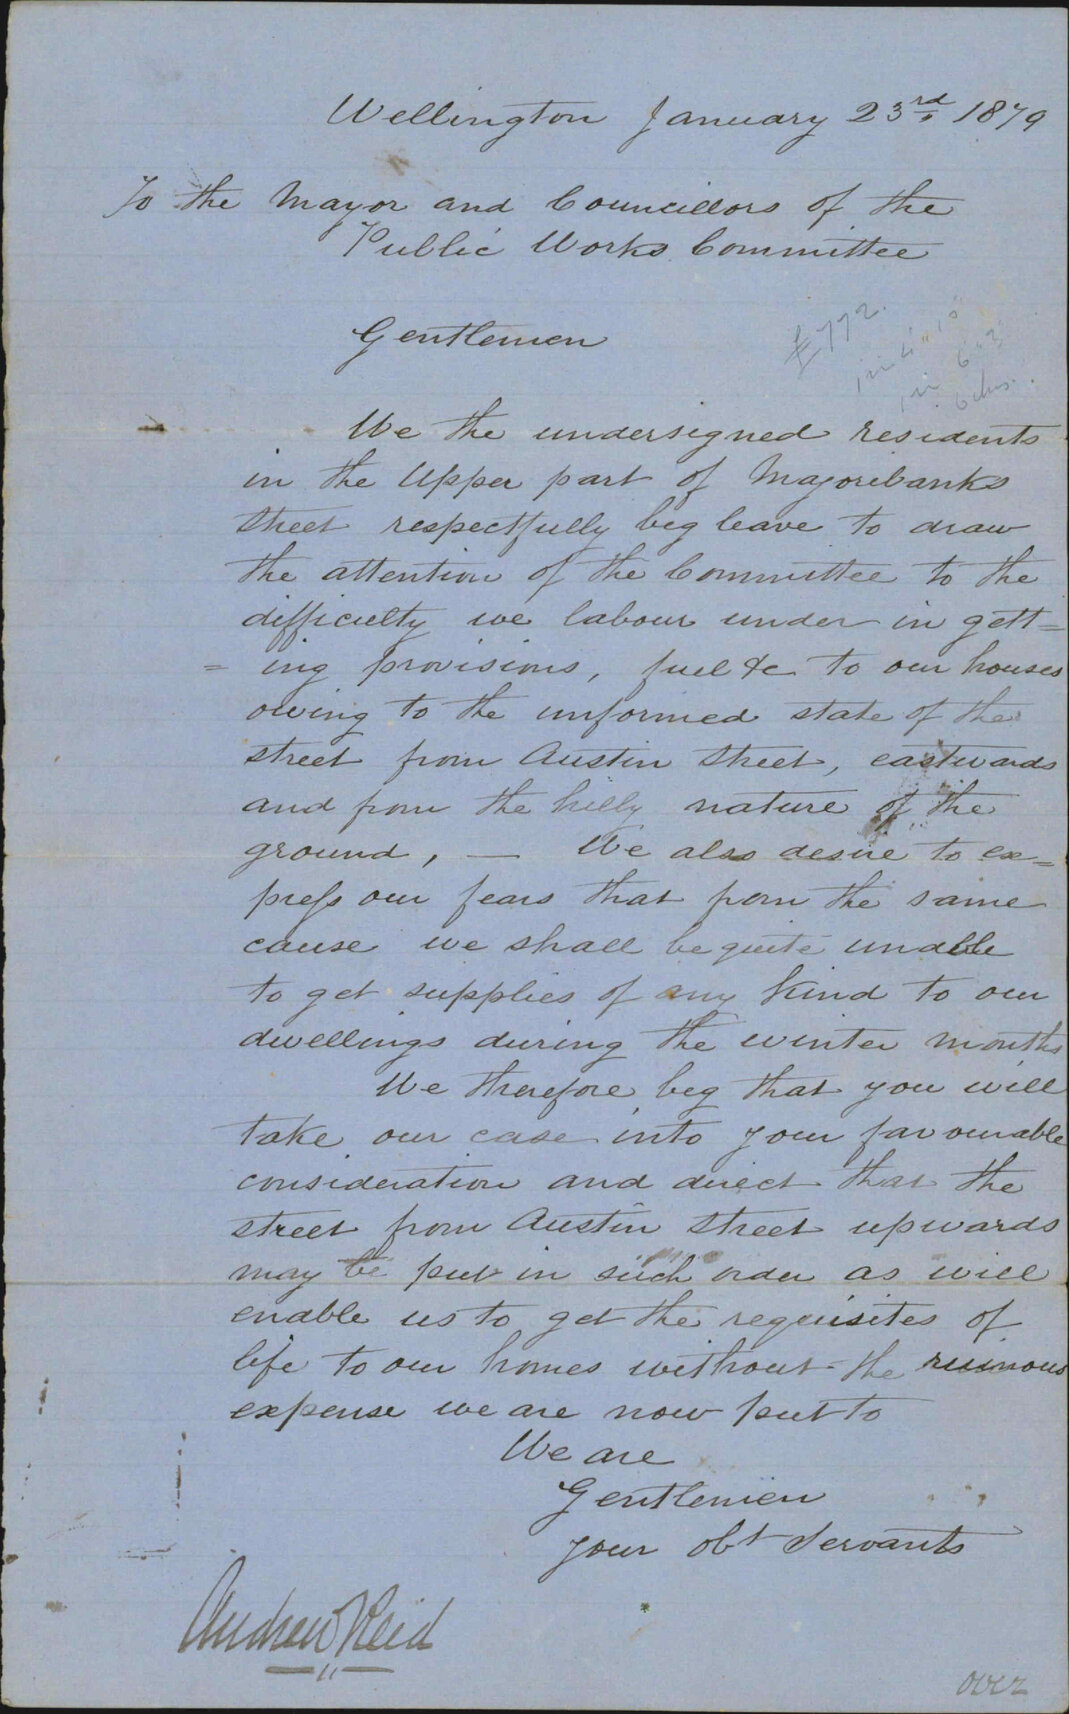 Wellington January 23rd 1879
To the Mayor and Councillors of the
Public Works Committee
Gentlemen
£772.
We the undersigned residents
in the Upper part of Majoribanks
Street respectfully beg leave to draw
the attention of the Committee to the
difficulty we labour under in gett=
=ing provisions, fuel &c to our houses
owing to the unformed state of the
street from Austin Street, eastwards
and from the hilly nature of the
ground, — We also desire to ex=
press our fears that from the same
cause we shall be quite unable
to get supplies of any kind to our
dwellings during the winter months
We therefore beg that you will
take our case into your favourable
consideration and direct that the
street from Austin Street upwards
may be put in such order as will
enable us to get the requisites of
life to our homes without the ruinous
expense we are now put to
We are
Gentlemen
your obt Servants
Andrew Reid
over